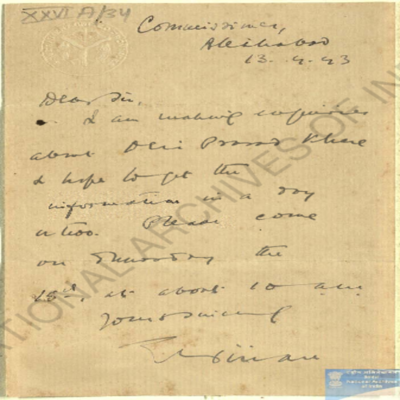 XXVI A/34
Commissioner,
Allahabad
13.9.43
Dear Sir,
I am making enquiries
about Devi Prasad Khare
& hope to get the
information in a day
or two. Please come
on Thursday the
at about 10 am.
Yours sincerely
NATIONAL ARCHIVES OF IN